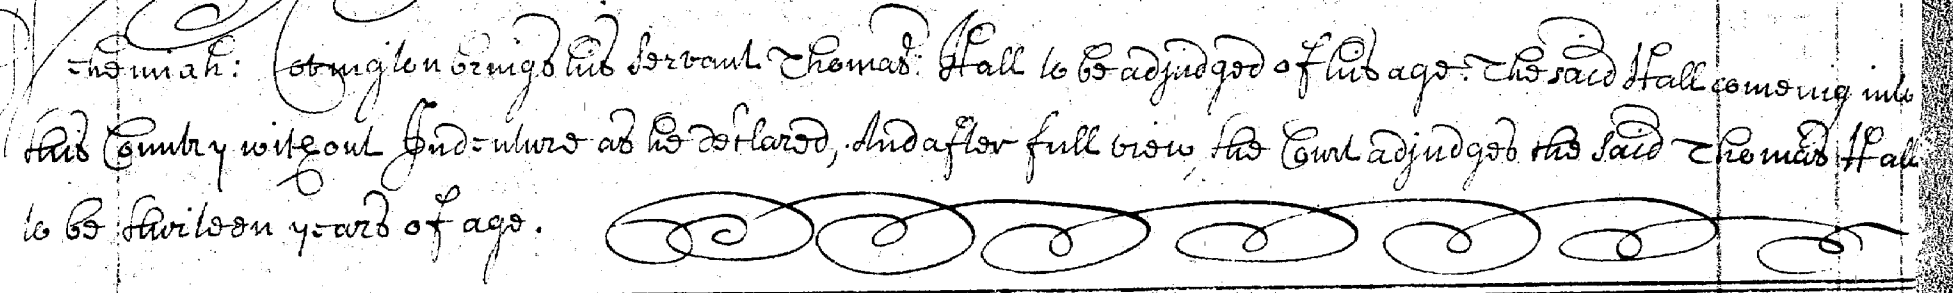 Nehemiah: Covington brings his servant Thomas: Hall to be adjudged of his age: The said Hall comeing into
this Country without Indenture as he declared, And after full view the Court adjudges the said Thomas Hall
to be thirteen years of age.